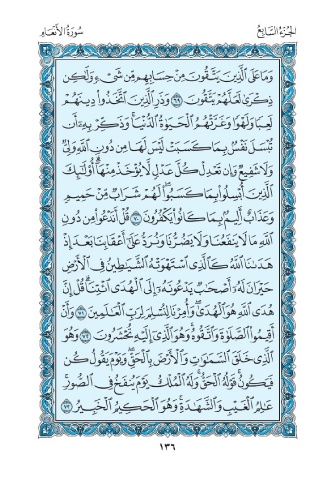 الجُزْءُ السَّابِعُ
سُورَةُ الأَنْعَامِ
وَمَا عَلَى ٱلَّذِينَ يَتَّقُونَ مِنْ حِسَابِهِم مِّن شَىْءٍ وَلَٰكِن
ذِكْرَىٰ لَعَلَّهُمْ يَتَّقُونَ ٦٩ وَذَرِ ٱلَّذِينَ ٱتَّخَذُوا۟ دِينَهُمْ
لَعِبًا وَلَهْوًا وَغَرَّتْهُمُ ٱلْحَيَوٰةُ ٱلدُّنْيَا ۚ وَذَكِّرْ بِهِۦٓ أَن
تُبْسَلَ نَفْسٌۢ بِمَا كَسَبَتْ لَيْسَ لَهَا مِن دُونِ ٱللَّهِ وَلِىٌّ
وَلَا شَفِيعٌ وَإِن تَعْدِلْ كُلَّ عَدْلٍ لَّا يُؤْخَذْ مِنْهَآ ۗ أُو۟لَٰٓئِكَ
ٱلَّذِينَ أُبْسِلُوا۟ بِمَا كَسَبُوا۟ ۖ لَهُمْ شَرَابٌ مِّنْ حَمِيمٍ
وَعَذَابٌ أَلِيمٌۢ بِمَا كَانُوا۟ يَكْفُرُونَ ٧٠ قُلْ أَنَدْعُوا۟ مِن دُونِ
ٱللَّهِ مَا لَا يَنفَعُنَا وَلَا يَضُرُّنَا وَنُرَدُّ عَلَىٰٓ أَعْقَابِنَا بَعْدَ إِذْ
هَدَىٰنَا ٱللَّهُ كَٱلَّذِى ٱسْتَهْوَتْهُ ٱلشَّيَٰطِينُ فِى ٱلْأَرْضِ
حَيْرَانَ لَهُۥٓ أَصْحَٰبٌ يَدْعُونَهُۥٓ إِلَى ٱلْهُدَى ٱئْتِنَا ۗ قُلْ إِنَّ
هُدَى ٱللَّهِ هُوَ ٱلْهُدَىٰ ۖ وَأُمِرْنَا لِنُسْلِمَ لِرَبِّ ٱلْعَٰلَمِينَ ٧١ وَأَنْ
أَقِيمُوا۟ ٱلصَّلَوٰةَ وَٱتَّقُوهُ ۚ وَهُوَ ٱلَّذِىٓ إِلَيْهِ تُحْشَرُونَ ٧٢ وَهُوَ
ٱلَّذِى خَلَقَ ٱلسَّمَٰوَٰتِ وَٱلْأَرْضَ بِٱلْحَقِّ ۖ وَيَوْمَ يَقُولُ كُن
فَيَكُونُ ۚ قَوْلُهُ ٱلْحَقُّ ۚ وَلَهُ ٱلْمُلْكُ يَوْمَ يُنفَخُ فِى ٱلصُّورِ ۚ
عَٰلِمُ ٱلْغَيْبِ وَٱلشَّهَٰدَةِ ۚ وَهُوَ ٱلْحَكِيمُ ٱلْخَبِيرُ ٧٣
١٣٦